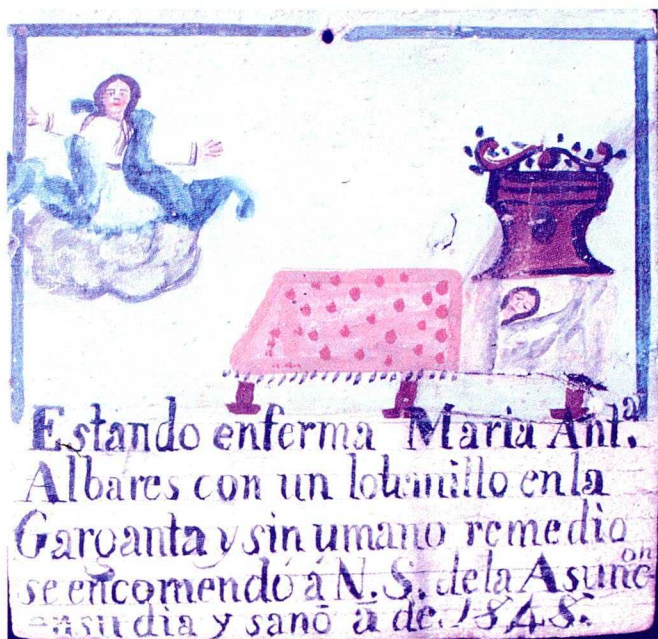 Estando enferma Maria Ant.ª
Albares con un lobanillo en la
Garganta y sin umano remedio
se encomendó á N. S. de la Asunc.on
en su dia y sanó á de 1848.